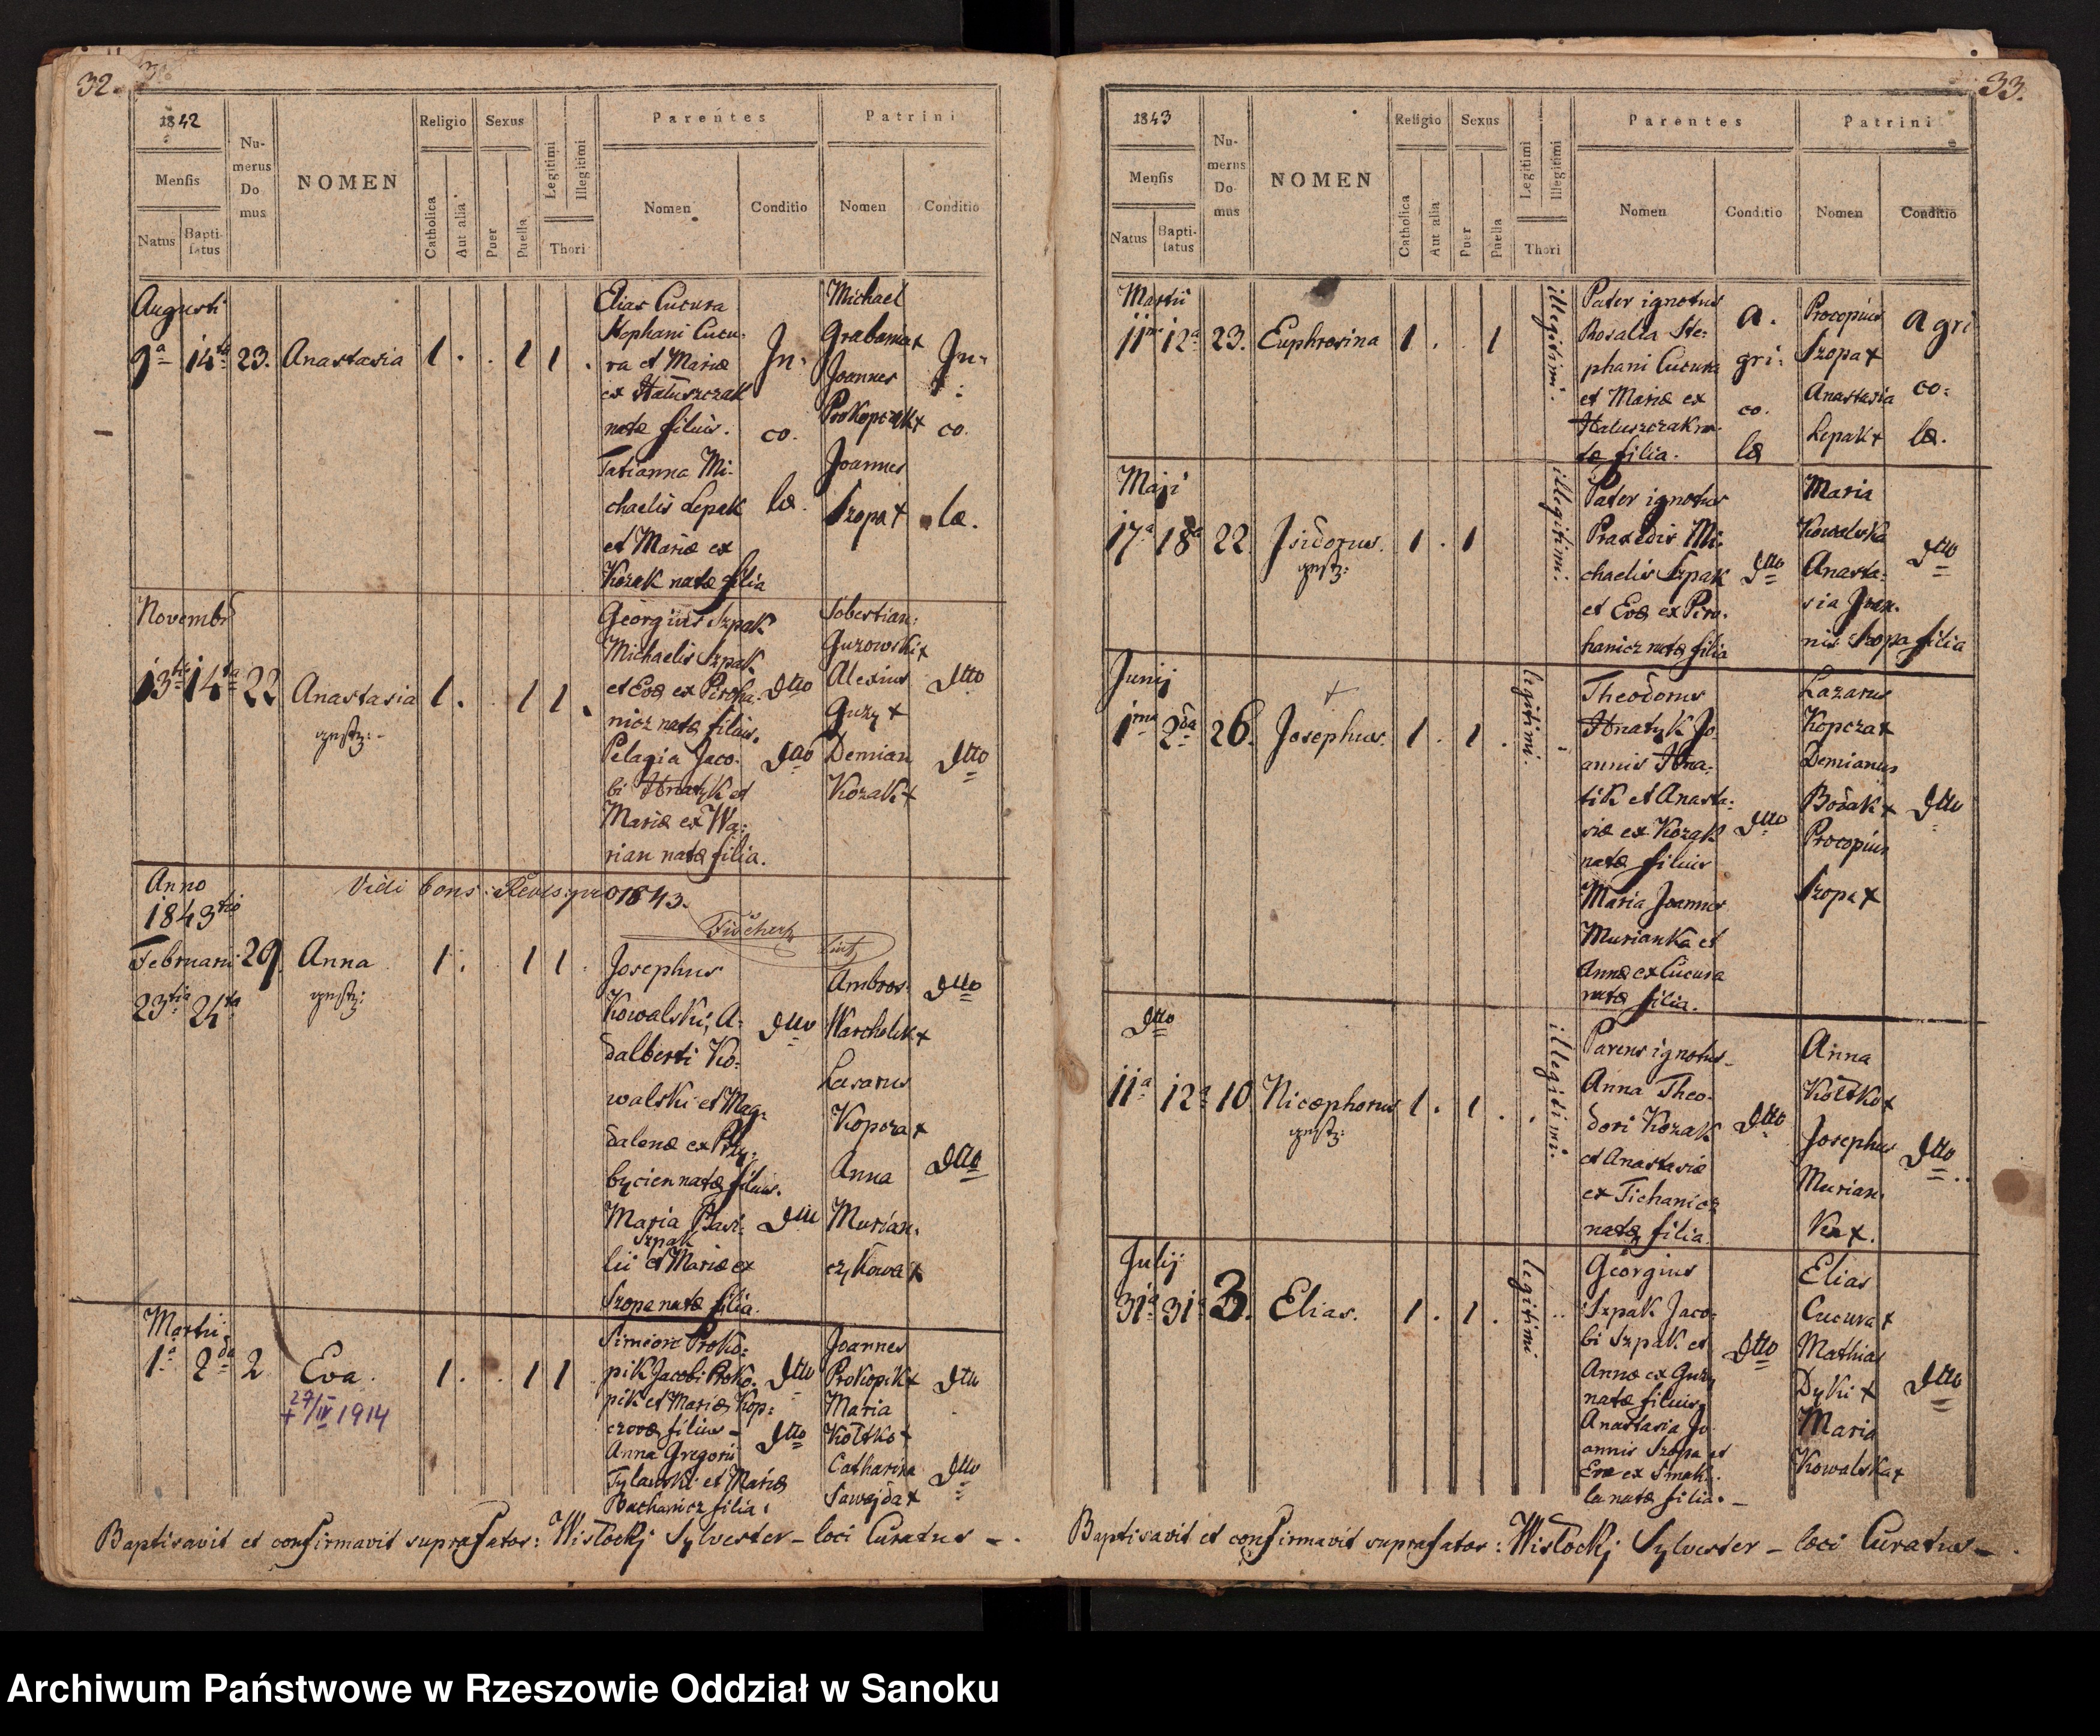 32.
1842
Mensis
Natus
Bapti-
satus
Nu-
merus
Do
mus
NOMEN
Religio
Catholica
Aut alia
Sexus
Puer
Puella
Legitimi
Illegitimi
Thori
Parentes
Nomen
Conditio
Patrini
Nomen
Conditio
Augusti
9a 14ta 23. Anastasia 1 . . 1 1 .
Elias Cucura
Stephani Cucu-
ra et Mariæ
ex Hatuszczak
natæ filius.
Tatianna Mi-
chaelis Lepak
et Mariæ ex
Kozak natæ filia
In-
co.
læ.
Michael
Grabania+
Joannes
Prokopczak+
Joannes
Szopa+
In-
co.
læ.
Novembr
13tia 14ta 22 Anastasia 1 . 1 1 .
Georgius Szpak
Michaelis Szpak
et Evæ ex Piroha-
nicz natæ filius.
Pelagia Jaco-
bi Hnatyk et
Mariæ ex Wa-
rian natæ filia.
Dtto
Dtto
Sobestian:
Guzowski+
Alexius
Guzy+
Demian
Kozak+
Dtto
Dtto
Anno
1843tio
Vidi Cons: Revis: pro 1843.
Februarii 29. Anna 1 . 1 1 .
23tia 24ta
Josephus
Kowalski, A-
dalberti Ko-
walski et Mag-
dalenæ ex Przy-
bycien natæ filius.
Maria Basi-
Szpak
lii et Mariæ ex
Szopa natæ filia.
Dtto
Dtto
Ambros:
Warcholik+
Lazarus
Kopcza+
Anna
Murian-
czykowa+
Dtto
Dtto
Martii
1a 2da 2 Eva. 1 . . 1 1
+ 27/IV 1914
Simeon Proko-
pik Jacobi Proko-
pik et Mariæ Kop-
czovæ filius -
Anna Gregorii
Tylawski et Mariæ
Buchanicz filia.
Dtto
Dtto
Joannes
Prokopik+
Maria
Kołtko+
Catharina
Sawajda+
Dtto
Dtto
Baptisavit et confirmavit suprafatos: Wisłockj Sylvester - loci Curatus -.
33.
1843
Mensis
Natus
Bapti-
satus
Nu-
merus
Do-
mus
NOMEN
Religio
Catholica
Aut alia
Sexus
Puer
Puella
Legitimi
Illegitimi
Thori
Parentes
Nomen
Conditio
Patrini
Nomen
Conditio
Martii
11ma 12a 23. Euphrosina 1 . 1
illegitimi.
Pater ignotus
Rosalia Ste-
phani Cucura
et Mariæ ex
Hatuszczak na-
tæ filia.
a.
gri:
co.
læ
Procopius
Szopa+
Anastasia
Lepak+
agri
co:
læ.
Maji
17a 18a 22. Isidorus. 1 . 1
illegitimi.
Pater ignotus
Praxedis Mi-
chaelis Szpak
et Evæ ex Piro-
hanicz natæ filia
Dtto
Maria
Kowalska
Anasta-
sia Joan-
nis Szopa filia
Dtto
Junij
1ma 2da 26. Josephus. 1 . 1 .
legitimi.
Theodorus
Hnatyk Jo-
annis Hna-
tik et Anasta-
siæ ex Kozak
natæ filius
Maria Joannes
Murianka et
Annæ ex Cucura
natæ filia.
Dtto
Lazarus
Kopcza+
Demianus
Bodak+
Procopius
Szopa+
Dtto
Dtto
11a 12a 10. Nicæphorus 1 . 1 . .
illegitimi.
Parens ignotus
Anna Theo-
dori Kozak
et Anastasiæ
ex Tichanicz
natæ filia.
Dtto
Anna
Kołtko+
Josephus
Murian-
ka+.
Dtto
Julij
31a 31a 3. Elias. 1 . 1 .
legitimi
Georgius
Szpak Jaco-
bi Szpak et
Annæ ex Guzy
natæ filius
Anastasia Jo-
annis Szopa et
Evæ ex Smak-
la natæ filia. -
Dtto
Elias
Cucura+
Mathias
Dyki+
Maria
Kowalska+
Dtto
Baptisavit et confirmavit suprafatos: Wisłockj Sylvester - loci Curatus -.
Archiwum Państwowe w Rzeszowie Oddział w Sanoku